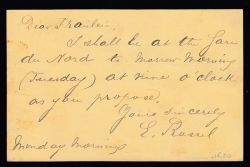 Dear Fräulein.
I shall be at the Gare
du Nord to morrow Morning
(Tuesday) at nine o'clock
as you propose.
Yours sincerely
E.
Monday Morning